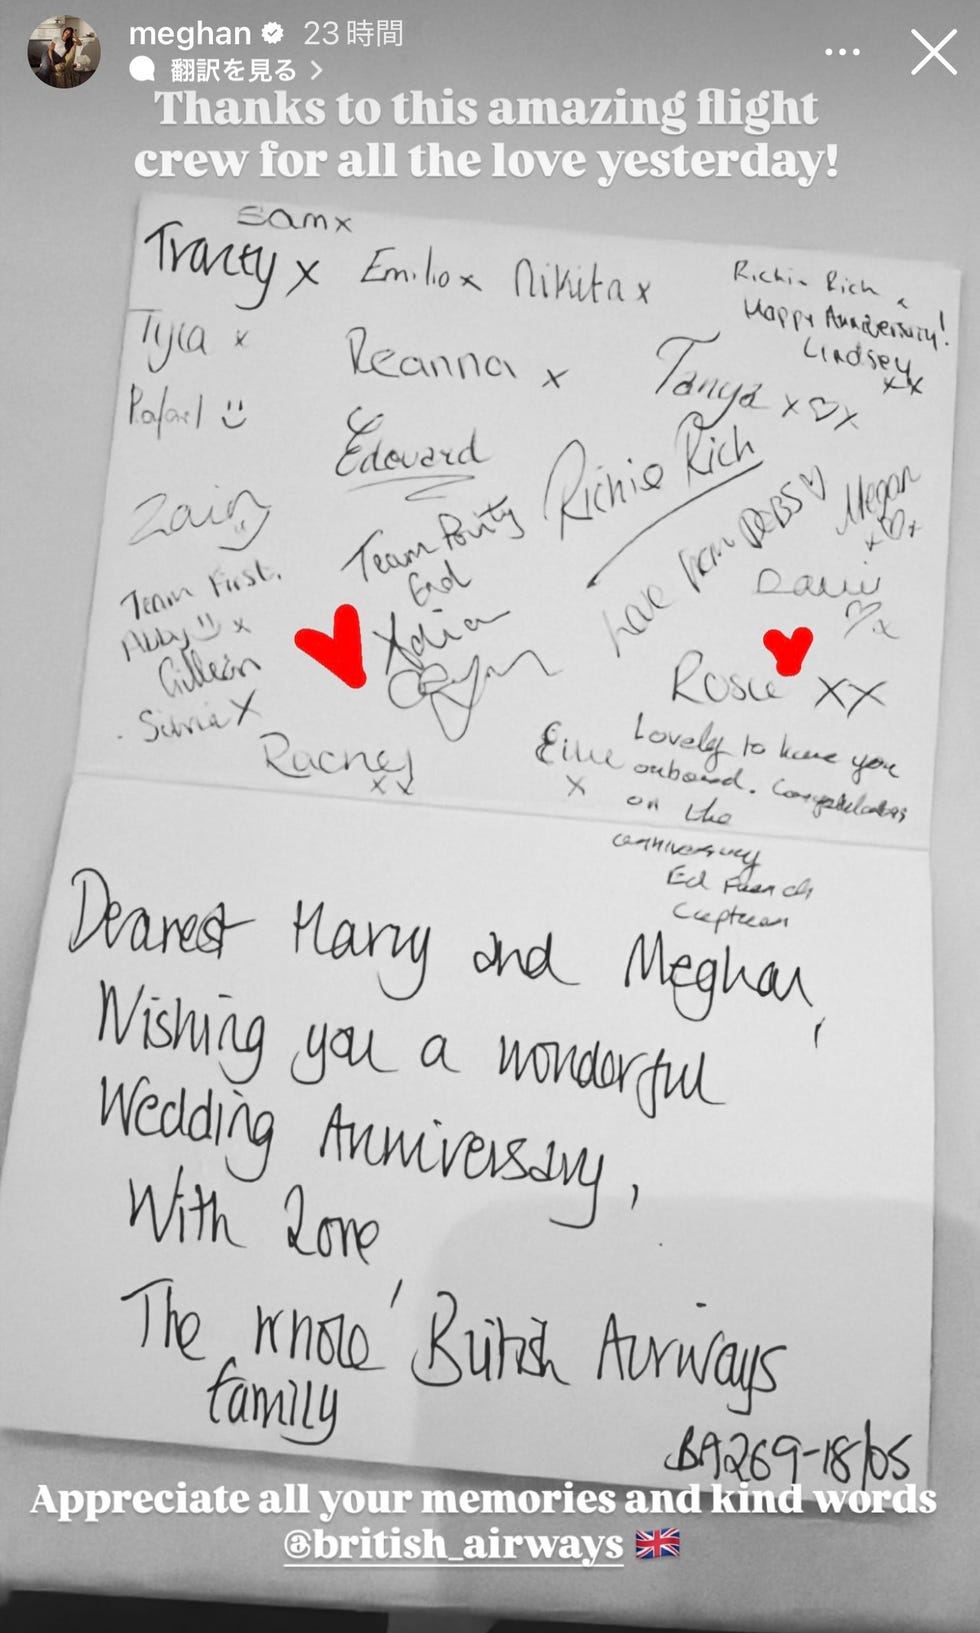 meghan 23時間
翻訳を見る
Thanks to this amazing flight
crew for all the love yesterday!
Sam x
Tracey x Emilio x Nikita x
Richie Rich x
Happy Anniversary!
Lindsey
xx
Tyla x
Reanna x
Tanya x♡x
Rafael
Edouard
Richie Rich
Zain
Team
End
Love from DEBS♡
Megan
x♡x
♡x
Team First.
Abby x
Gillean
Silvia X
Rosie XX
Racney
xx
Lovely to have you
onboard. Congratulations
x
on the
anniversary
Ed French
Captain
Dearest Harry and Meghan,
Wishing you a wonderful
Wedding Anniversary,
With Love,
The whole British Airways
family
BA269-18/05
Appreciate all your memories and kind words
@british_airways 🇬🇧